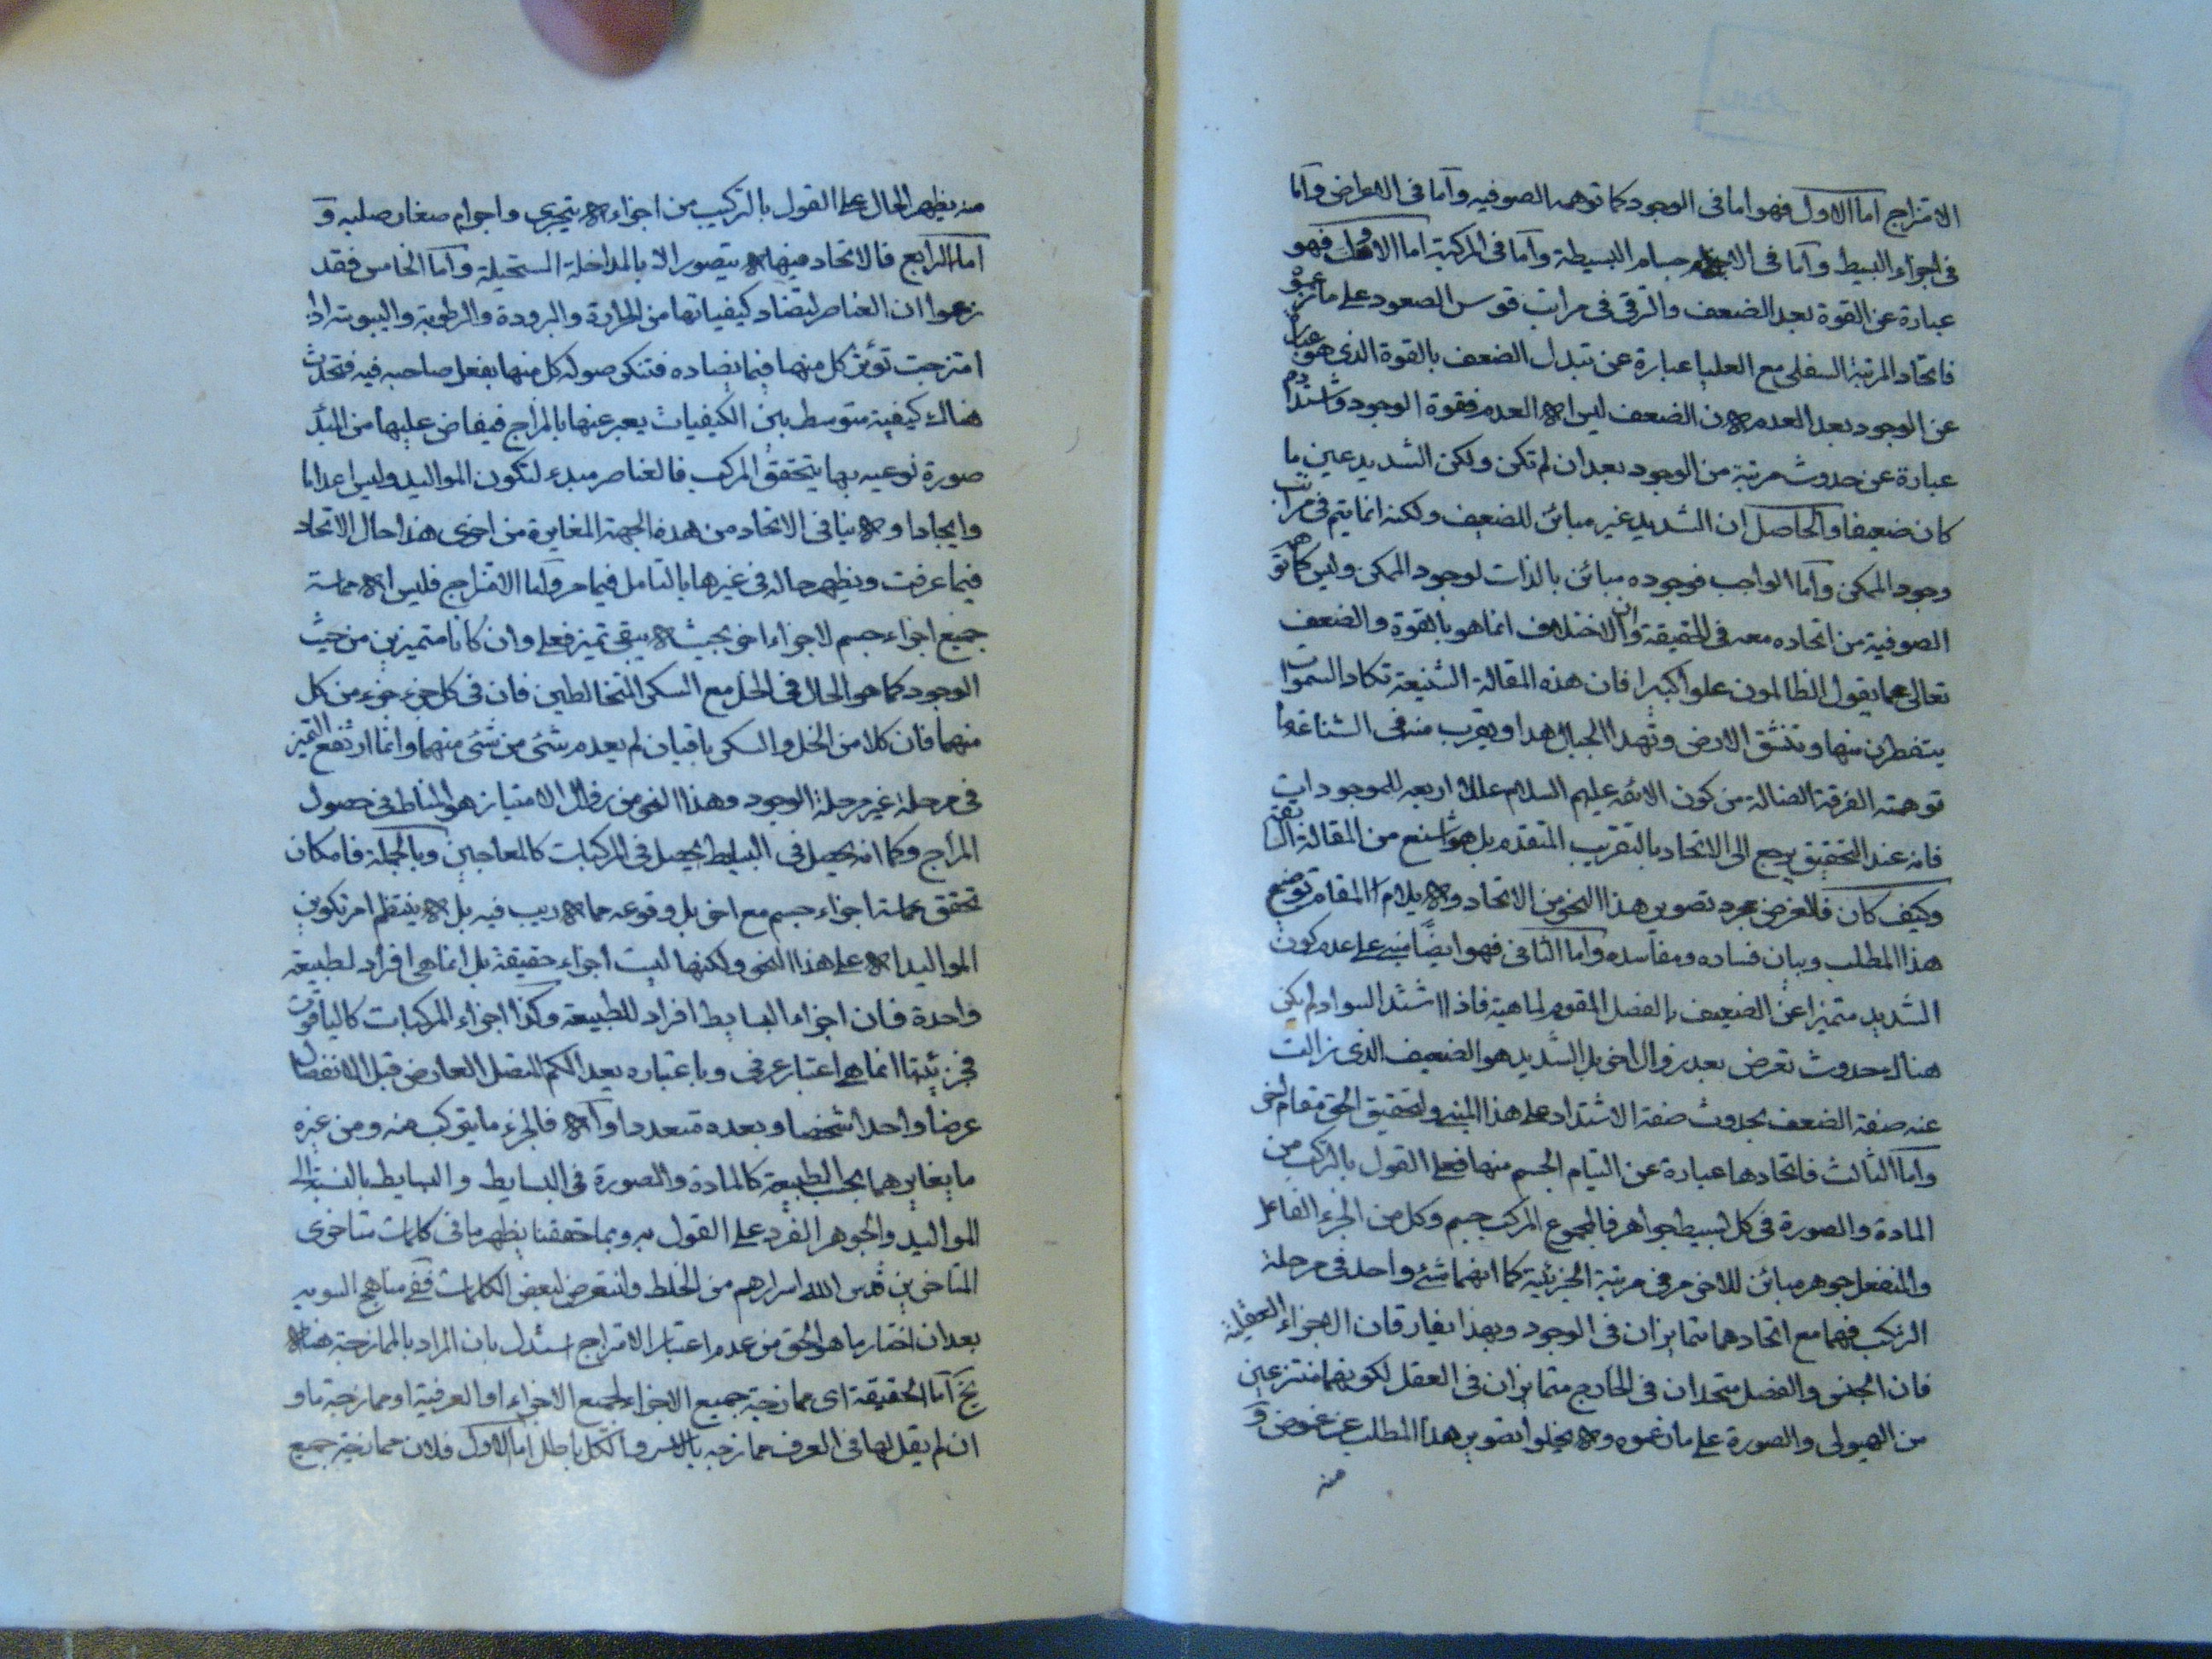 الامتزاج اما الاول فهو اما فى الوجود كما توهمه الصوفيه وآما فى الاعراض وآما
فى اجزاء البسيط وآما فى الاجسام البسيطة وآما فى المركبة اما الاول فهو
عبارة عن القوة بعد الضعف والترقى فى مراتب قوس الصعود على ما
فاتحاد المرتبة السفلى مع العليا عبارة عن تبدل الضعف بالقوة الذى هو عبارة
عن الوجود بعد العدم لان الضعف ليس الا العدم فقوة الوجود واشتداده
عبارة عن حدوث مرتبة من الوجود بعد ان لم تكن ولكن الشديد عين ما
كان ضعيفا والحاصل ان الشديد غير مبائن للضعيف ولكنه انما يتم فى مراتب
وجود الممكن وآما الواجب فوجوده مبائن بالذات لوجود الممكن وليس كما توهمه
الصوفية من اتحاده معه فى الحقيقة وان الاختلاف انما هو بالقوة والضعف
تعالى عما يقول الظالمون علوا كبيرا فان هذه المقالة الشنيعة تكاد السموات
يتفطرن منها وتنشق الارض وتهد الجبال هدا ويقرب منه فى الشناعة ما
توهمته الفرقة الضالة من كون الائمة عليهم السلام عللا اربعه للموجودات
فانه عند التحقيق يرجع الى الاتحاد بالتقريب المتقدم بل هو اشنع من المقالة السابقة
وكيف كان فالغرض مجرد تصوير هذا النحو من الاتحاد ولا يلائم المقام توضيح
هذا المطلب وبيان فساده ومفاسده وآما الثانى فهو ايضًا مبنى على عدم كون
الشديد متميزا عن الضعيف بالفصل المقوم لماهيته فاذا اشتد السواد لم يكن
هناك حدوث تعرض بعد زوال اخر بل الشديد هو الضعيف الذى زالت
عنه صفة الضعف بحدوث صفة الاشتداد على هذا المبنى ولتحقيق الحق مقام اخر
وآما الثالث فاتحادها عبارة عن التيام الجسم منها فعلى القول بالتركب من
المادة والصورة فى كل بسيط جواهر فالمجموع المركب جسم وكل من الجزء الفاعل
والمنفعل جوهر مبائن للاخر فى مرتبة الجزئية كما انهما شئ واحد فى مرحلة
التركب فهما مع اتحادهما متمايزان فى الوجود وبهذا يفارقان الاجزاء العقلية
فان الجنس والفصل متحدان فى الخارج متمايزان فى العقل لكونهما منتزعين
من الهيولى والصورة على ما زعموه ولا يخلوا تصوير هذا المطلب عن غموض و
منه
منه يظهر الحال على القول بالتركيب من اجزاء لا يتجزى و اجرام صغار صلبه و
اما الرابع فالاتحاد فيها لا يتصور الا بالمداخلة المستحيلة وآما الخامس فقد
زعموا ان العناصر لتضاد كيفياتها من الحرارة والبرودة والرطوبة واليبوسة اذا
امتزجت تؤثر كل منها فيما يضاده فتنكسر صولة كل منها بفعل صاحبه فيه فتحدث
هناك كيفية متوسط بين الكيفيات يعبر عنها بالمزاج فيفاض عليها من المبدء
صورة نوعيه بها يتحقق المركب فالعناصر مبدء لتكون المواليد وليس اعداما
وايجادا ولا ينافى الاتحاد من هذه الجهة المغايرة من اخرى هذا حال الاتحاد
فيما عرفت ويظهر حاله فى غيرها بالتامل فيما مر وآما الامتزاج فليس الا مماسة
جميع اجزاء جسم لاجزاء اخر بحيث لا يبقى تميز فعلى وان كانا متميزين من حيث
الوجود كما هو الحال فى الخل مع السكر المتخالطين فان فى كل جزء جزء من كل
منهما فان كلا من الخل والسكر باقيان لم يعدم شئ من شئ منهما وانما ارتفع التميز
فى مرحلة غير مرحلة الوجود وهذا النحو من زوال الامتياز هو المناط فى حصول
المزاج وكما انه يحصل فى البسايط يحصل فى المركبات كالمعاجين وبالجملة فامكان
تحقق مماسة اجزاء جسم مع اخر بل وقوعه مما لا ريب فيه بل لا ينتظم امر تكوين
المواليد الا على هذا النحو ولكنها ليست اجزاء حقيقة بل انما هى افراد لطبيعة
واحدة فان اجزاء البسايط افراد للطبيعة وكذا اجزاء المركبات كالياقوت
فجزئيتها انما هى اعتبار عرفى وباعتباره يعد الكم المتصل العارض قبل الانفصال
عرضا واحدا شخصا وبعده متعددا والا فالجزء ما يتركب منه ومن غيره
ما يغايرهما بحسب الطبيعة كالمادة والصورة فى البسايط والبسايط بالنسبة الى
المواليد والجوهر الفرد على القول به وبما حققنا يظهر ما فى كلمات متاخرى
المتاخرين قدس الله اسرارهم من الخلط ولنتعرض لبعض الكلمات ففى مناهج السويه
بعد ان اختار ما هو الحق من عدم اعتبار الامتزاج استدل بان المراد بالممازجة هنا لا
يخ اما الحقيقة اى ممازجة جميع الاجزاء لجميع الاجزاء او العرفية او ممازجة ما و
ان لم يقل لها فى العرف ممازجه بالاسر والكل باطل اما الاول فلان ممازجة جميع